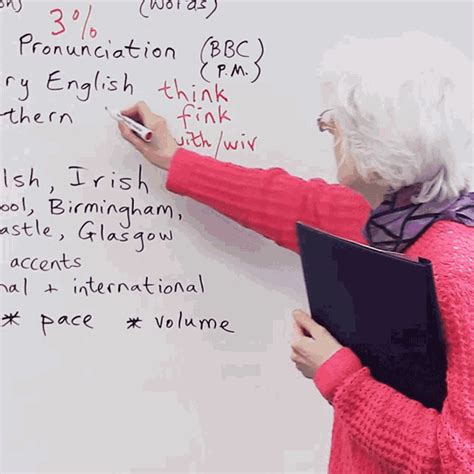 (words)
3%
Pronunciation (BBC)
(P.M.)
ry English think
thern fink
with/wiv
lsh, Irish
ool, Birmingham,
astle, Glasgow
accents
nal + international
* pace * volume